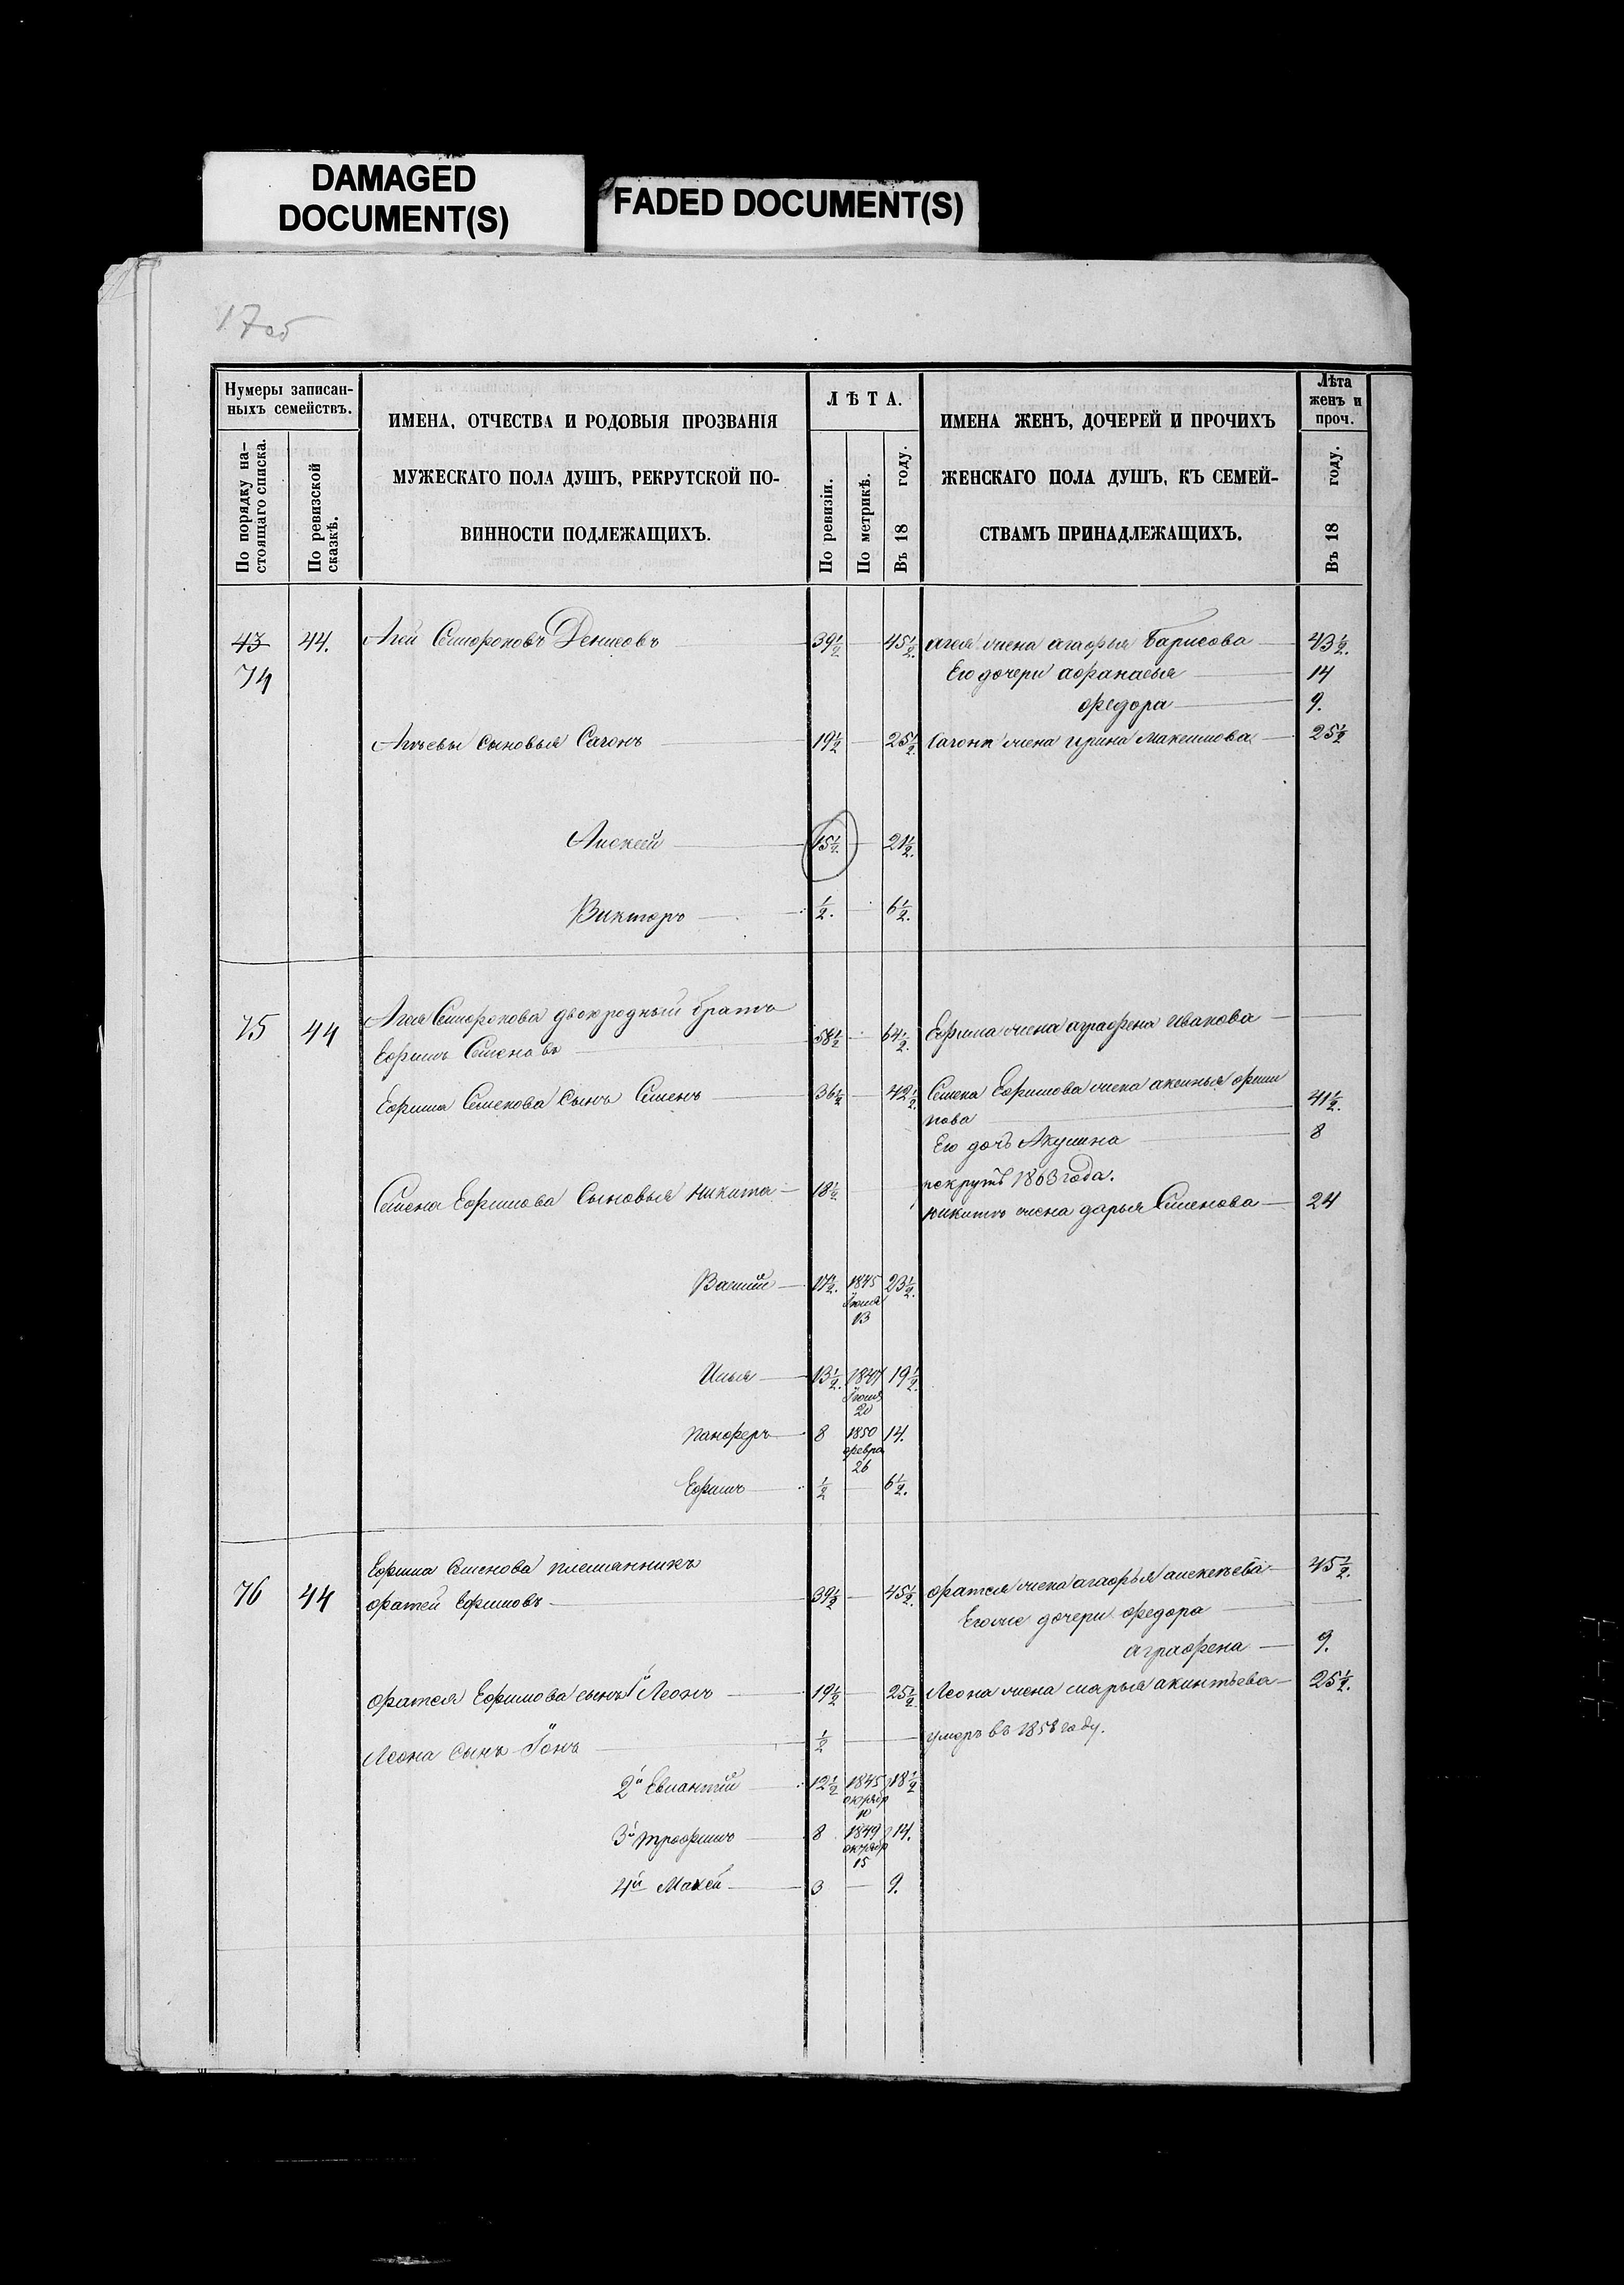 DAMAGED
DOCUMENT(S)
FADED DOCUMENT(S)
17об
Нумеры записан-
ныхъ семействъ.
По порядку на-
стоящаго списка.
По ревизской
сказкѣ.
ИМЕНА, ОТЧЕСТВА И РОДОВЫЯ ПРОЗВАНІЯ
МУЖЕСКАГО ПОЛА ДУШЪ, РЕКРУТСКОЙ ПО-
ВИННОСТИ ПОДЛЕЖАЩИХЪ.
ЛѢТА.
По ревизіи.
По метрикѣ.
Въ 18 году.
ИМЕНА ЖЕНЪ, ДОЧЕРЕЙ И ПРОЧИХЪ
ЖЕНСКАГО ПОЛА ДУШЪ, КЪ СЕМЕЙ-
СТВАМЪ ПРИНАДЛЕЖАЩИХЪ.
Лѣта
женъ и
проч.
Въ 18 году.
43 44. Агей Денисовъ 39½ 45½. агея жена агафья Барисова 43½.
74
Его дочери афанасья 14
федора 9.
Агѣевы сыновья Сагонъ 19½ 25½. Сагона жена ирина Максимова 25½
Алексей 15½. 21½.
Викторъ ½. 6½.
75 44 Агея двоюродный братъ
Ефимъ Семеновъ 58½ 64½. Ефима жена аграфена Иванова
Ефима Семенова сынъ Семенъ 36½ 42½. Семена Ефимова жена аксинья фили
пова 41½.
Его дочь Акулина 8
рекрутъ 1863 года.
Семена Ефимова Сыновья никита 18½. никиты жена дарья Семенова 24
Василій 17½. 1845 23½.
Іюня
13
Илья 13½. 1847 19½.
Іюля
20
панферъ 8 1850 14.
февра
26
Ефимъ ½ 6½.
Ефима Семенова племянникъ
76 44 фатей Ефимовъ 39½ 45½. фатея жена агафья алексеева 45½.
Егоже дочери федора
аграфена 9.
фатея Ефимова сынъ 1й Леонъ 19½ 25½. Леона жена марья акинтьева 25½.
Леона сынъ Іонъ ½ умеръ въ 1858 году.
2й Евлантій 12½ 1845 18½
октябр
10
3й трофимъ 8 1849 14.
октябр
15
4й Макей 3 9.